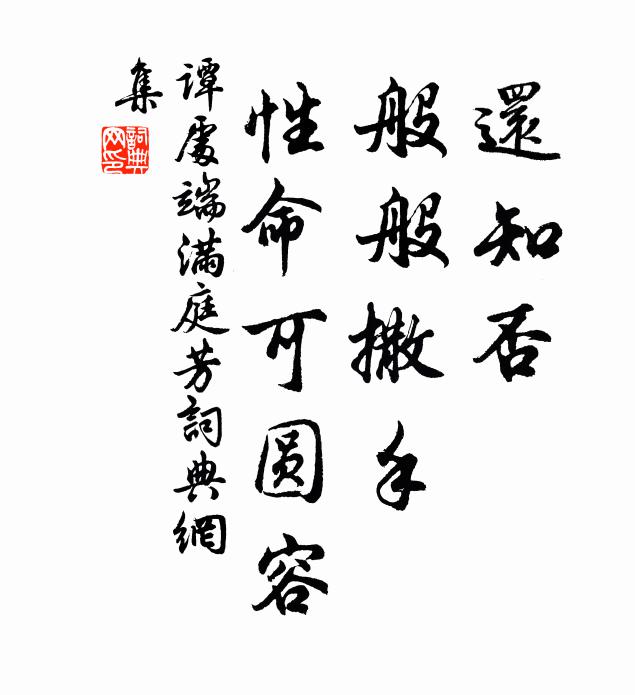 還知否
般般撒手
性命可圆容
譚處端满庭芳詞典網
集
詞典
网印